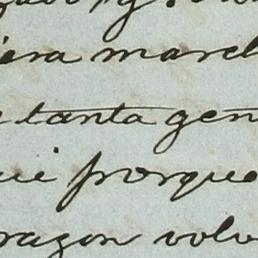 era march
tanta gen
porque
razon volv